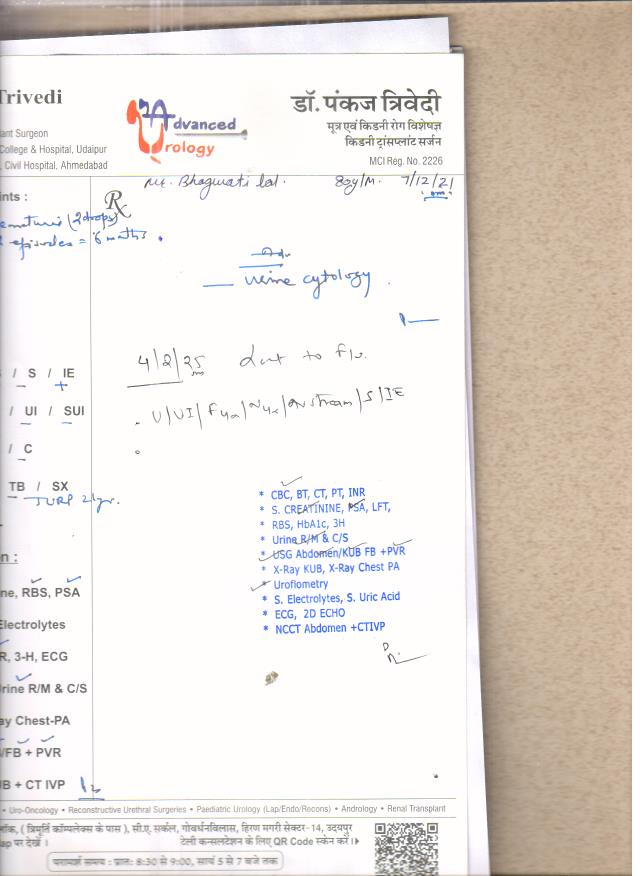 Trivedi
ant Surgeon
College & Hospital, Udaipur
, Civil Hospital, Ahmedabad
Advanced
Urology
डॉ. पंकज त्रिवेदी
मूत्र एवं किडनी रोग विशेषज्ञ
किडनी ट्रांसप्लांट सर्जन
MCI Reg. No. 2226
Mr. Bhagwati lal. 80y/M. 7/12/21
ints :
Rx
(2 drops)
episodes = 6 months.
Adv
urine cytology
/ S / IE
+
/ UI / SUI
/ C
TB / SX
TURP 21yr.
4/2/25 to F/U.
. U/UI/ /stream/S/IE
* CBC, BT, CT, PT, INR
* S. CREATININE, PSA, LFT,
* RBS, HbA1c, 3H
* Urine R/M & C/S
* USG Abdomen/KUB FB +PVR
* X-Ray KUB, X-Ray Chest PA
* Uroflometry
* S. Electrolytes, S. Uric Acid
* ECG, 2D ECHO
* NCCT Abdomen +CTIVP
n :
ne, RBS, PSA
Electrolytes
R, 3-H, ECG
rine R/M & C/S
ay Chest-PA
/FB + PVR
B + CT IVP
• Uro-Oncology • Reconstructive Urethral Surgeries • Paediatric Urology (Lap/Endo/Recons) • Andrology • Renal Transplant
लॉक, ( त्रिमूर्ति कॉम्पलेक्स के पास ), सी.ए. सर्कल, गोवर्धनविलास, हिरण मगरी सेक्टर-14, उदयपुर
ap पर देखें । टेली कन्सलटेशन के लिए QR Code स्केन करें ।
परामर्श समय : प्रातः 8:30 से 9:00, सायं 5 से 7 बजे तक